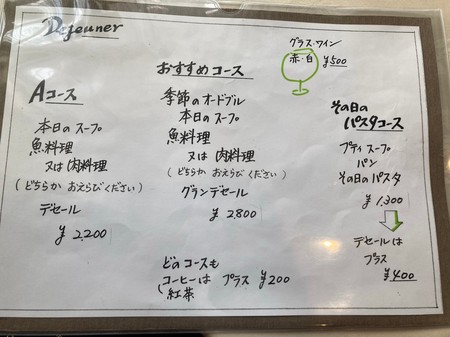 Dejeuner
Aコース
本日のスープ
魚料理
又は肉料理
(どちらか おえらびください)
デセール
¥2,200
おすすめコース
季節のオードブル
本日のスープ
魚料理
又は 肉料理
(どちらか おえらびください)
グランデセール
¥2,800
グラス・ワイン
赤・白 ¥500
その日の
パスタコース
プティスープ
パン
その日のパスタ
¥1,300
デセールは
プラス
¥400
どのコースも
コーヒーは プラス ¥200
紅茶